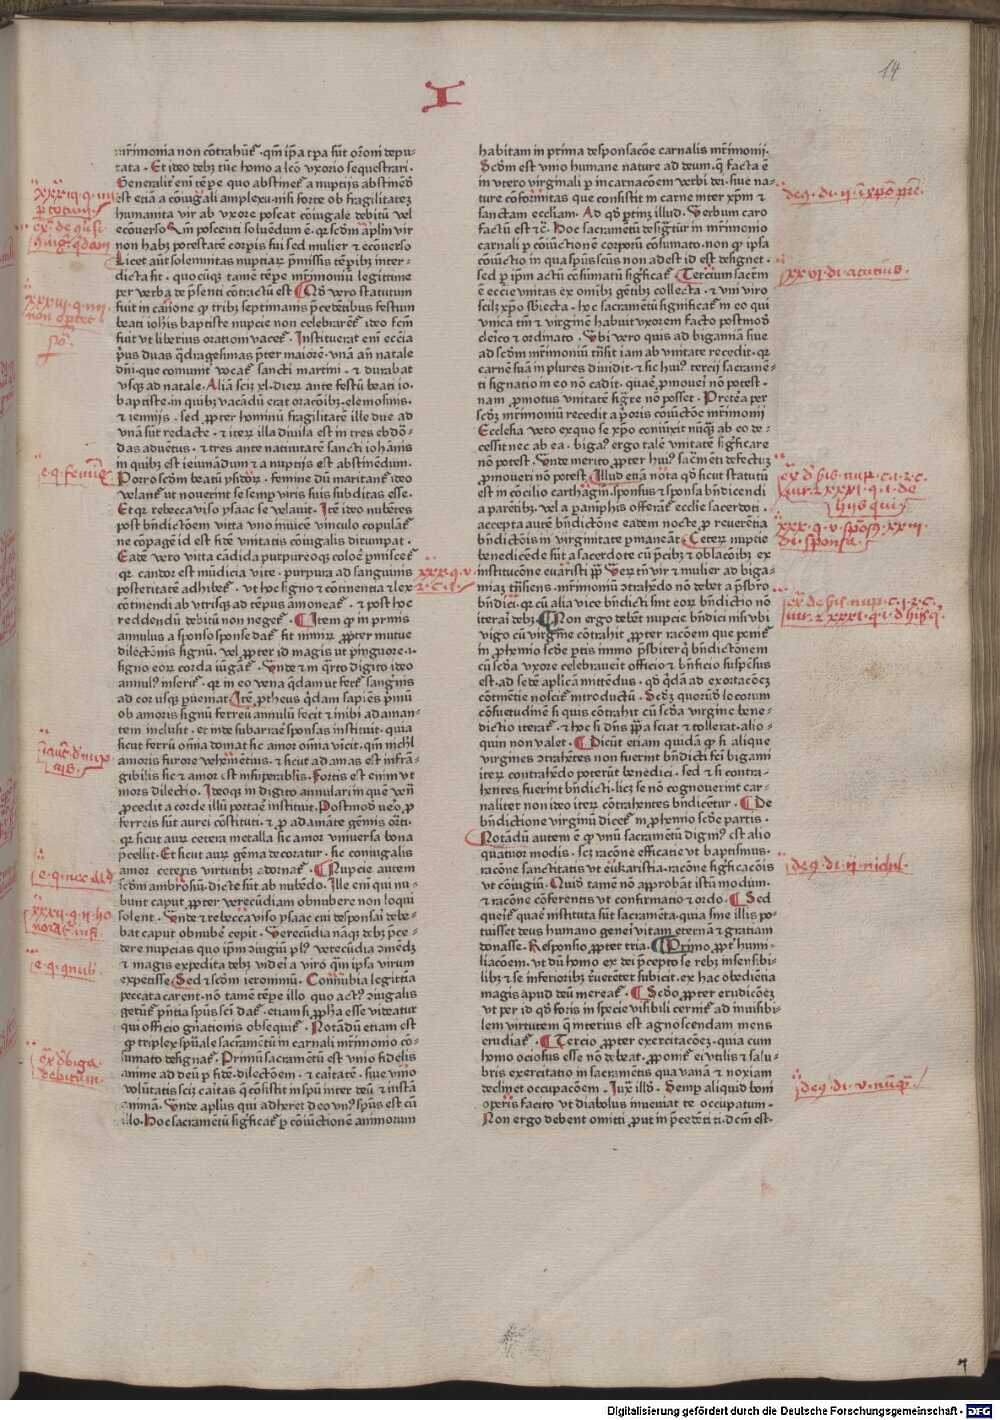 14
I
mr̃imonia non cõtrahũt̃ · qm̃ ip̃a tp̃a sũt or̃oni depu-
tata · Et ideo debꝫ tũc homo a lcõ vxorio sequestrari ·
Generalit̃ em̃ tp̃e quo abstinet̃ a nuptijs abstinẽdũ
est etiã a cõiugali amplexu · nisi forte ob fragilitateꝫ
humanitã vir ab vxore poscat cõiugale debitũ vel
ecõuerso qm̃ poscenti soluẽdum ẽ · qꝛ scd̃m ap̃lm̃ vir
non habꝫ potestatẽ corp̃is sui sed mulier ⁊ ecõuerso
Licet aut̃ solemnitas nuptiaꝝ p̃missis tẽp̃ibꝫ inter-
dicta sit · quocũqꝫ tamẽ tẽp̃e mr̃imoniũ legittime
per verba de p̃senti cõtractũ est Qd̃ vero statutum
fuit in canone ꝙ tribꝫ septimanis p̃cedẽtibus festum
beati ioh̃is baptiste nupcie non celebrarẽt̃ ideo fcm̃
fuit vt liberius orationi vacet̃ · Instituerat em̃ ecc̃ia
p̃us duas q̃dragesimas p̃ter maiorẽ · vnã añ natale
dñi · que comunit̃ vocat̃ sancti martini · ⁊ durabat
vsqꝫ ad natale · Aliã sciꝫ xl · dieꝝ ante festũ beati io-
baptiste · in quibꝫ vacãdũ erat oracõibꝫ · elemosinis ·
⁊ ieiunijs · sed ꝓpter hominũ fragilitatẽ ille due ad
vnã sũt redacte · ⁊ iteꝝ illa diuisa est in tres ebdõ-
das aduẽtus · ⁊ tres ante natiuitatẽ sancti ioh̃anis
in quibꝫ est ieiunãdum ⁊ a nuptijs est abstinẽdum ·
Porro scd̃m beatũ ysidoꝝ · femine dũ maritant̃ ideo
velant̃ ut nouerint se semp̃ viris suis subditas esse ·
Et qꝛ rebecca viso ysaac se velauit · Itẽ ideo nubẽtes
post bñdictõem vitta vno inuicẽ vinculo copulãt̃
ne cõpagẽ id est fidẽ vnitatis cõiugalis dirumpat ·
Eadẽ vero vitta cãdida purpureoqꝫ coloꝛe p̃miscet̃
qꝛ candor est mũdicia vite · purpura ad sanguinis
posteritatẽ adhibet̃ · vt hoc signo ⁊ cõtinentia ⁊ lex
cõtinendi ab vtrisqꝫ ad tẽpus amoneat̃ · ⁊ post hoc
reddendũ debitũ non neget̃ · Item ꝙ in p̃mis
annulus a sponso sponse dat̃ fit nimiꝝ ꝓpter mutue
dilectõnis signũ · vel ꝓpter id magis ut pignore · i ·
signo eoꝝ corda iũgãt̃ · Vnde ⁊ in q̃rto digito ideo
annulꝰ inserit̃ · qꝛ in eo vena q̃dam ut fert̃ sangñis
ad cor usqꝫ puenat Itẽ ꝓtheus q̃dam sapiẽs p̃mũ
ob amoris signũ ferreũ annulũ fecit ⁊ inibi adaman-
tem inclusit · et inde subarraẽ sponsas instituit · quia
sicut ferrũ om̃ia domat sic amor om̃ia vicit · qm̃ nichil
amoris furore vehemẽtius · ⁊ sicut adamas est infrã-
gibilis sic ⁊ amor est insuperabilis · Fortis est enim vt
mors dilectio · Ideoqꝫ in digito annulari in quẽ vẽa
ꝓcedit a corde illũ portaẽ instituit · Postmodũ vero ꝓ
ferreis sũt aurei cõstituti · ⁊ ꝓ adamãte gẽmis orñti ·
qꝛ sicut auꝝ cetera metalla sic amor vniuersa bona
p̃cellit · Et sicut auꝝ gẽma decoratur · sic coniugalis
amor ceteris virtutibꝫ adornat̃ · Nupcie autem
scd̃m ambrosiũ · dicte sũt ab nubẽdo · Ille eni qui nu-
bunt caput ꝓpter verecũdiam obnubere non loqui
solent · Vnde ⁊ rebecca viso ysaac cui desponsai debe-
bat caput obnubẽ cepit · Verecũdia nãqꝫ debꝫ p̃ce-
dere nupcias quo ip̃m ꝯiugiũ plꝰ verecũdia ꝯmedꝫ
⁊ magis expedita debꝫ videri a viro q̃m ip̃sa virum
expetisse Sed ⁊ scd̃m ieronimũ · Connubia legittĩa
peccata carent · nõ tamẽ tẽpe illo quo actꝰ ꝯiugalis
gerũt̃ p̃ntia sp̃us sci dat̃ · etiam si ꝓpha esse videatur
qui officio gñationis obsequit̃ · Notãdũ etiam est
ꝙ triplex spũale sacramẽtũ in carnali mr̃imonio cõ-
sumato designat̃ · Primũ sacramẽtũ est vnio fidelis
anime ad deũ p fidẽ · dilectõem · ⁊ caitatẽ · siue vnio
volũtatis sciꝫ caitas q̃ cõsistit in spũ inter deũ ⁊ iustã
animã · Vnde aplus qui adheret deo vnꝰ sp̃us est cũ
illo · Hoc sacramẽtũ sigficat̃ p̃ cõiũctionẽ animorum
habitam in prima desponsacõe carnalis mr̃imonij ·
Scd̃m est vnio humane nature ad deum · q̃ facta ẽ
in vtero virginali p incarnacõem verbi dei · siue na-
ture cõformitas que consistit in carne inter xp̃m ⁊
sanctam eccliam · Ad qd̃ ptinꝫ illud · Verbum caro
factũ est ⁊c̃ · Hoc sacramẽtũ desigtur in mr̃imonio
carnali p̃ cõiũctionẽ corporũ cõsumato · non ꝙ ip̃sa
cõiũctio in qua spũs scũs non adest id est designet ·
sed p̃ ip̃m actũ cõsumatũ sigficat̃ Tercium sacrm̃
ẽ ecc̃ie vnitas ex om̃ibꝫ gẽtibꝫ collecta · ⁊ vni viro
scilꝫ xp̃o sbiecta · hoc sacramẽtũ significat̃ in eo qui
vnicã tm̃ ⁊ virginẽ habuit vxorem facto postmod̃
clẽico ⁊ ordinato · Vbi vero quis ad bigamiã siue
ad scd̃m mr̃imoniũ trñsit iam ab vnitate recedit · qꝛ
carnẽ suã in plures diuidit · ⁊ sic huiꝰ tercij sacramẽ-
ti signatio in eo nõ cadit · quaꝓ ꝓmoueri nõ potest ·
nam ꝓmotus vnitatẽ sigr̃e nõ posset · Pretẽa per
scd̃ꝫ mr̃imoniũ recedit a p̃oris coiũctõe mr̃imonij
Ecclesia vero ex quo se xp̃o coniũxit nũqꝫ ab eo re-
cessit nec ab ea · bigaꝰ ergo talẽ vnitatẽ sigficare
nõ potest · Vnde merito ꝓpter huiꝰ sacm̃ti defectuꝫ
ꝓmoueri nõ potest · Illud etiã nõta qd̃ sicut statutũ
est in cõcilio carthagiñ · sponsus ⁊ sponsa bñdicendi
a parẽtibꝫ vel a paniphis offerãt̃ ecclie sacerdoti ·
accepta autẽ bñdictõne eadem nocte p̃ reuerẽtia
bñdictõis in virginitate p̃maneãt Ceteꝝ nupcie
benedicẽde sũt a sacerdote cũ p̃cibꝫ ⁊ oblacõibꝫ ex
institucõne euaristi pp̃ Veꝝtñ vir ⁊ mulier ad biga-
miaꝫ trñsiens · mr̃imoniũ ꝯtrahẽdo nõ debet a p̃sbr̃o
bñdici · qꝛ cũ alia vice bñdicti sint eoꝝ bñdictio nõ
iterai debꝫ Non ergo debẽt nupcie bñdici nisi vbi
vigo cũ virgine cõtrahit ꝓpter racõem que ponit̃
in ꝓhemio scd̃e p̃tis immo p̃sbiter q̃ bñdictõnem
cũ scd̃a vxore celebrauerit officio ⁊ bñficio suspẽsus
est · ad sedẽ aplicã mittẽdus · qd̃ q̃dã ad exortacõeꝫ
cõtinẽtie noscit̃ introductũ · Scd̃ꝫ quorũd̃ locorum
cõsuetudinẽ si quis cõtrahit cũ scd̃a virgine bene-
dictio iterat̃ · ⁊ hoc si dñs pp̃a sciat ⁊ tollerat · alio-
quin non valet · Dicũt etiam quidã ꝙ si alique
virgines ꝯtrahẽtes non fuerint bñdicti sc̃i bigami
iteꝝ contrahẽdo poterũt benedici · sed ⁊ si contra-
hentes fuerint bñdicti · licꝫ se nõ cognouerint car-
naliter non ideo iteꝝ cõtrahentes bñdicẽtur · De
bñdictione virginũ dicet̃ in ꝓhemio scd̃e partis ·
Notãdũ autem ẽ ꝙ vnũ sacramẽtũ digniꝰ est alio
quatuor modis · sciꝫ racõne efficatie vt baptismus ·
racõne sanctitatis vt eukaristia · racõne sigficacõis
vt cõiugiũ · Quid̃ tamẽ nõ approbãt istũ modum ·
⁊ racõne cõferentis vt confirmatio ⁊ ordo · Sed
querit̃ quaꝛe instituta sũt sacramẽta · quia sine illis po-
tuisset deus humano geneꝛi vitam eternã ⁊ gratiam
donasse · Responsio ꝓpter tria · Primo ꝓpt̃ humi-
liacõem · vt dũ homo ex dei p̃cepto se rebꝫ insensibi-
libꝫ ⁊ se inferioribꝫ reuerẽter subicit · ex hac obediẽtia
magis apud deũ mereat̃ · Scd̃o ꝓpter erudicõeꝫ
ut per id qd̃ foris in specie visibili cernit̃ ad inuisibi-
lem virtutem q̃ interius est agnoscendam mens
erudiat̃ · Tercio ꝓpter exercitacõeꝫ · quia cum
homo ociosus esse nõ debeat · ꝓponit̃ ei vtilis ⁊ salu-
bris exercitatio in sacramẽtis qua vanã ⁊ noxiam
declinet occupacõem · Iuxꝰ illd̃ · Semp̃ aliquid boni
operis facito vt diabolus inueniat te occupatum ·
Non ergo debent omitti ꝓut in p̃cedẽti ti · dcm̃ est ·
Digitalisierung gefördert durch die Deutsche Forschungsgemeinschaft - DFG